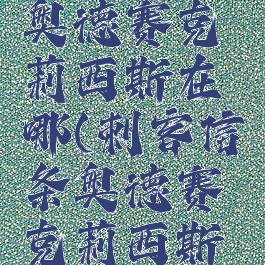 奥德赛克
莉西斯在
哪(刺客信
条奥德赛
克莉西斯